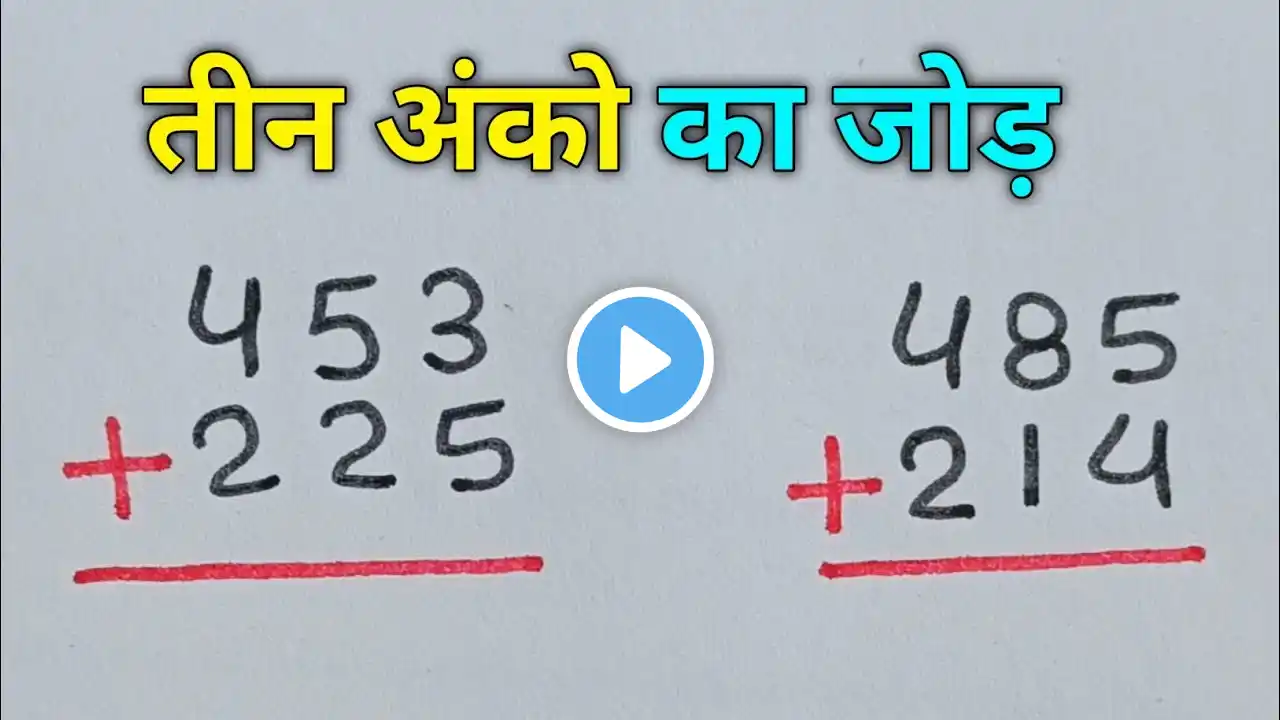 तीन अंको का जोड़
453
+225
485
+214